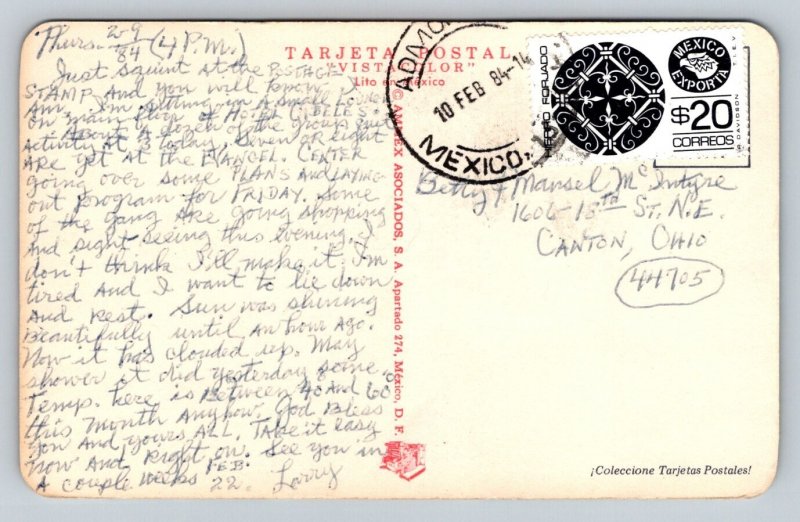 Thurs. 2-9
84 (4 P.M.)
Just squint at the POSTAGE
STAMP And you will know I
Am. I'm sitting in a small Lounge
on main floor of Hotel
About A dozen of the group out
activity at 3 today. Seven or eight
ARE yet at the EVANGEL. CENTER
going over some PLANS and LAYING
out program for FRIDAY. Some
of the gang ARE going shopping
And sight-seeing this evening. I
don't think I'll make it. I'm
tired And I want to lie down
And Rest. Sun was shining
Beautifully until AN hour Ago.
Now it has clouded up. May
shower it did yesterday some.
Temp. here is Between 40 And 60°
this Month Anyhow. God Bless
You And yours ALL. Take it easy
now And Right on. See you in
A couple weeks FEB. 22. Larry
TARJETA POSTAL
"VISTACOLOR"
Lito en México
© AMMEX ASOCIADOS, S. A. Apartado 274, México, D. F.
ADMO
10 FEB 84-14
MÉXICO,
HIERRO FORJADO
MEXICO
EXPORTA
$20
CORREOS
T.I.E.V.
DAVIDSON
Betty & Mansel McIntyre
1606-18th ST. N.E.
CANTON, OHIO
44705
¡Coleccione Tarjetas Postales!